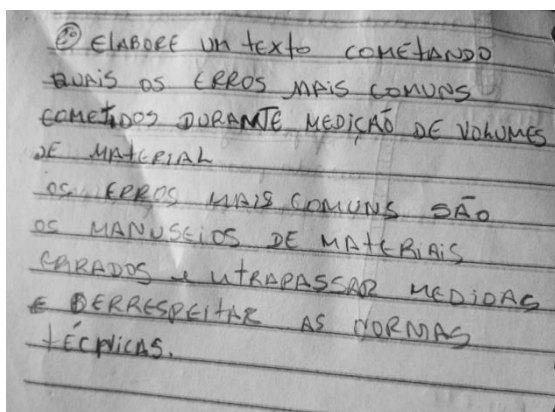 2º ELABORE UM tEXto COMETANDO
QUAIS OS ERROS MAIS COMUNS
COMETIDOS DURANTE MEDIÇÃO DE VOLUMES
DE MATERIAL
OS ERROS MAIS COMUNS SÃO
OS MANUSEIOS DE MATERIAIS
ERRADOS e UTRAPASSAR MEDIDAS
E DERRESPEITAR AS NORMAS
TÉCNICAS.